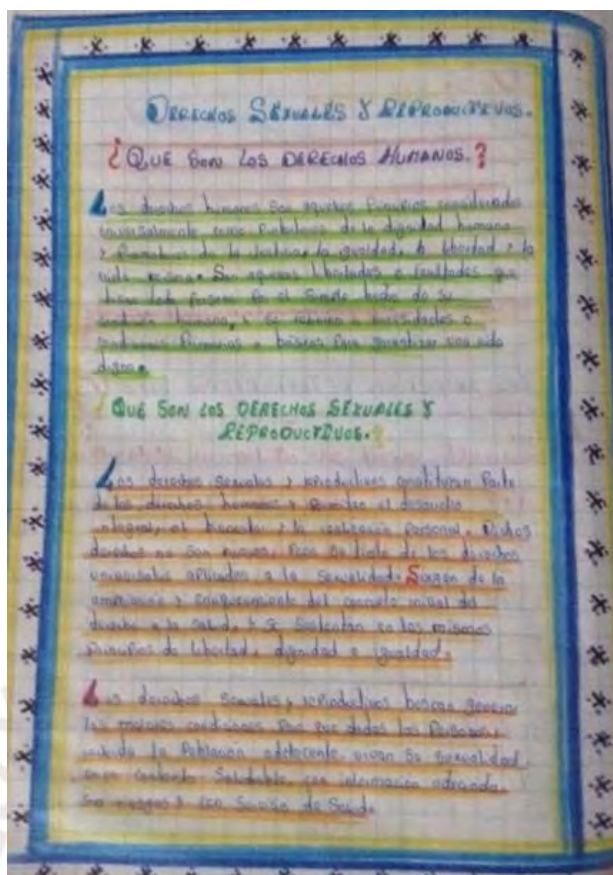 DERECHOS SEXUALES Y REPRODUCTIVOS.
¿QUE SON LOS DERECHOS HUMANOS.?
Los derechos humanos son aquellos Principios considerados
universalmente como de la dignidad humana
y de la Justicia, la igualdad, la libertad y la
vida misma. Son aquellas libertades o facultades que
tiene toda persona Por el simple hecho de su
condición humana, y se refieren a necesidades o
condiciones Primarias o básicas Para garantizar una vida
digna.
¿QUÉ SON LOS DERECHOS SEXUALES Y
REPRODUCTIVOS.?
Los derechos sexuales y reproductivos constituyen Parte
de los derechos humanos y Permiten el desarrollo
integral, el bienestar y la realización Personal. Dichos
derechos no son nuevos, Pues se trata de los derechos
universales aplicados a la sexualidad. Surgen de la
ampliación y enriquecimiento del concepto inicial del
derecho a la salud, y se sustentan en los mismos
Principios de libertad, dignidad e igualdad.
Los derechos sexuales y reproductivos buscan generar
las mejores condiciones Para que todas las Personas,
incluida la Población adolecente, vivan su sexualidad
en un contexto Saludable, con información adecuada,
sin riesgos y con Servicios de Salud.